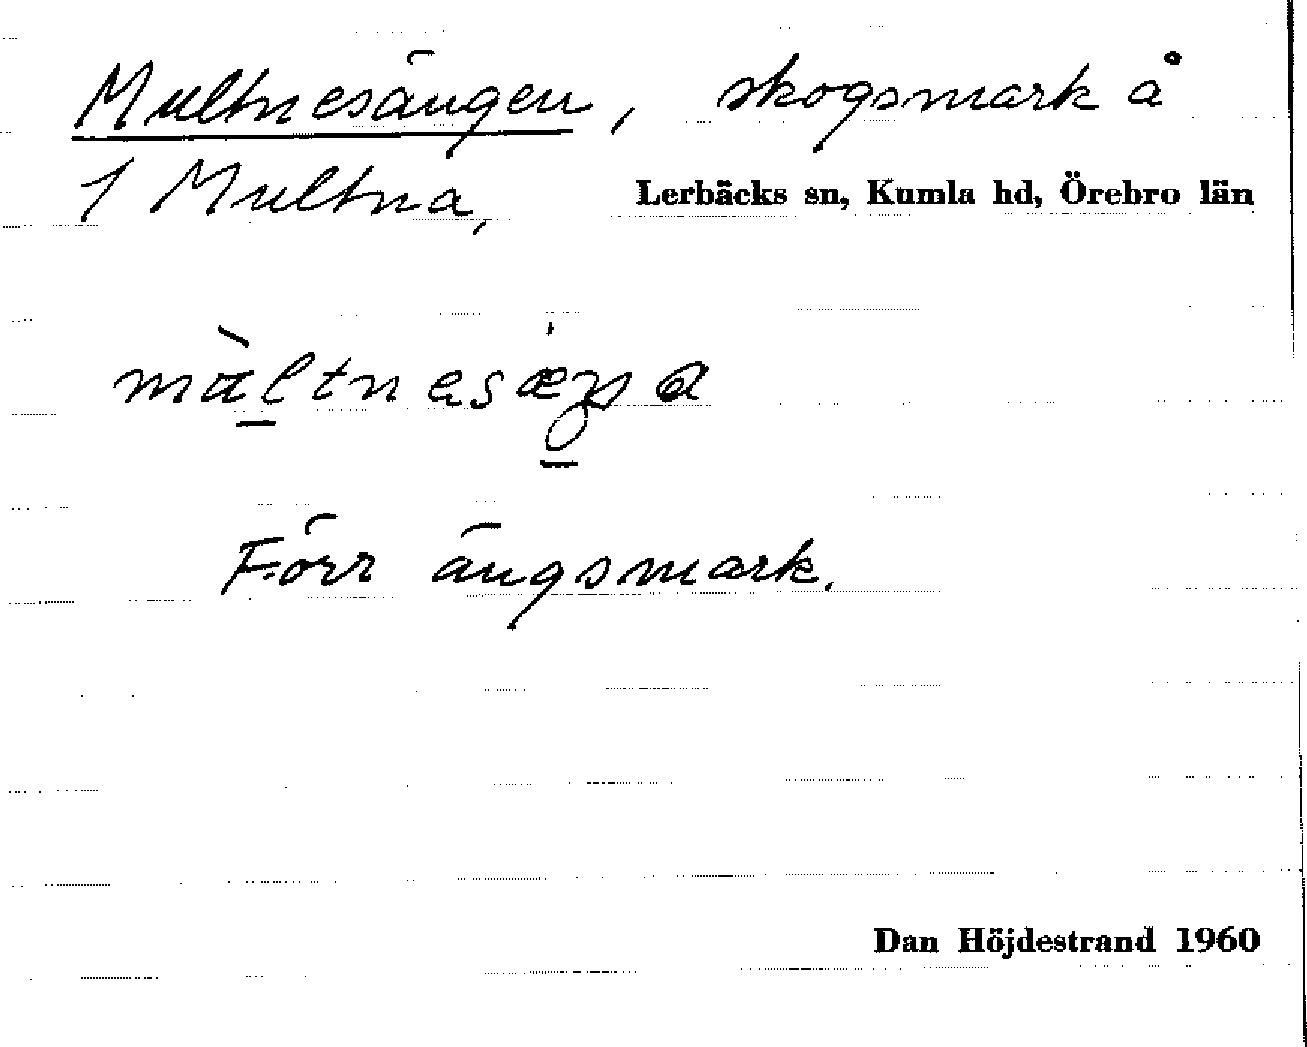 Multnesängen, skogsmark å
1 Multna, Lerbäcks sn, Kumla hd, Örebro län
Förr ängsmark.
Dan Höjdestrand 1960